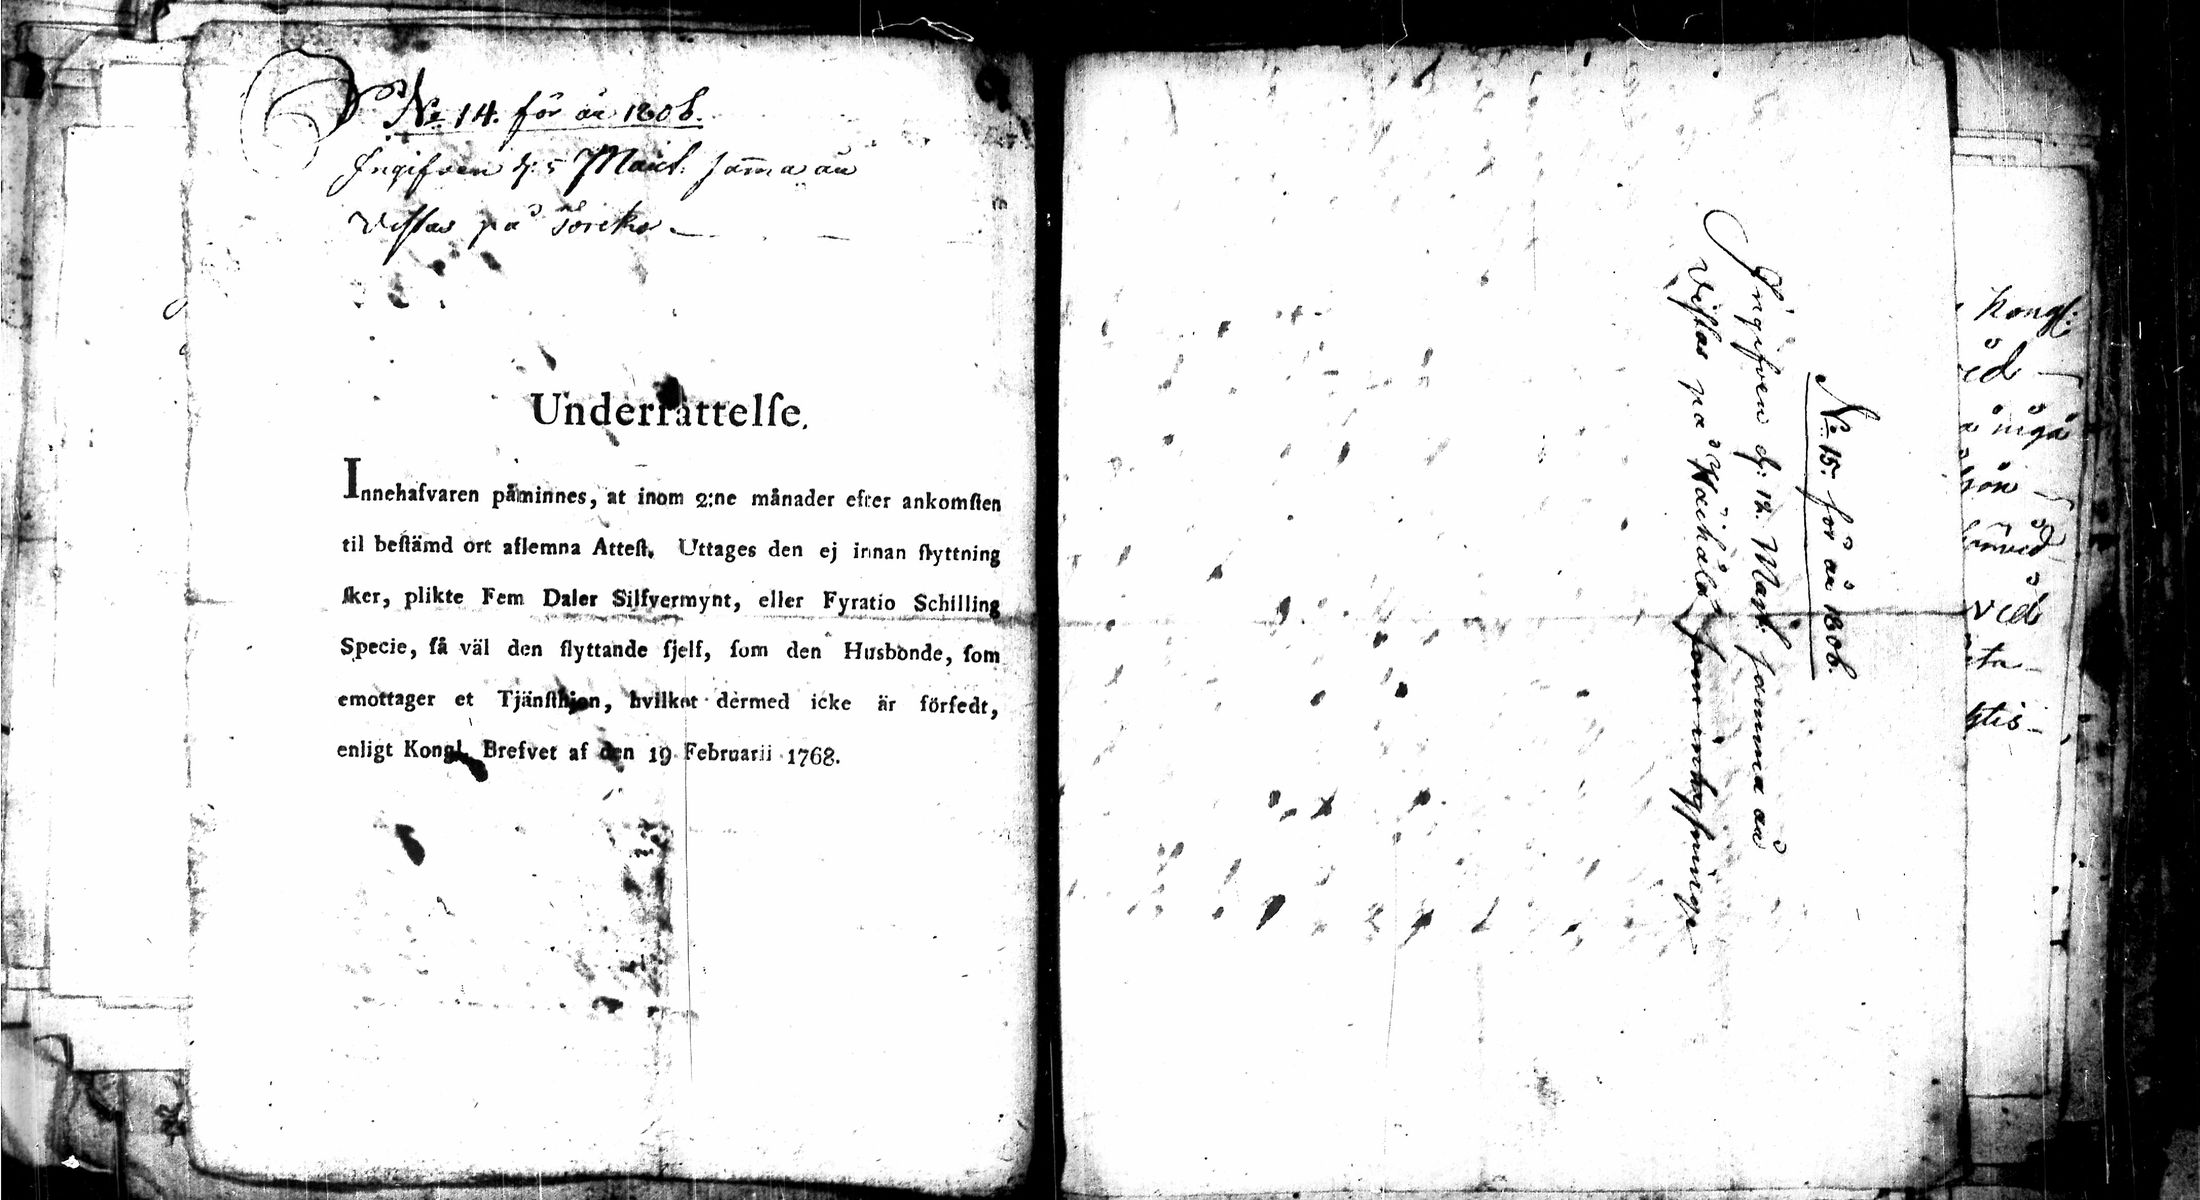 No 14. för år 1806.
Ingifven d: 5 Mart. samma år
Vistas på
Underrättelſe.
Innehafvaren påminnes, at inom 2:ne månader efter ankomſten
til beſtämd ort aflemna Atteſt. Uttages den ej innan flyttning
ſker, plikte Fem Daler Silfvermynt, eller Fyratio Schilling
Specie, få väl den flyttande ſjelf, ſom den Husbonde, ſom
emottager et Tjänſthjon, hvilket dermed icke är förſedt,
enligt Kongl. Brefvet af den 19 Februarii 1768.
No 15. för år 1806.
Ingifven d: 12. Mart. samma år
Vistas på som inhysninge
Kongl:
ved